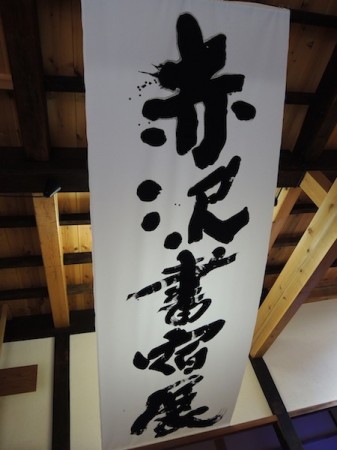 赤沢書宿展